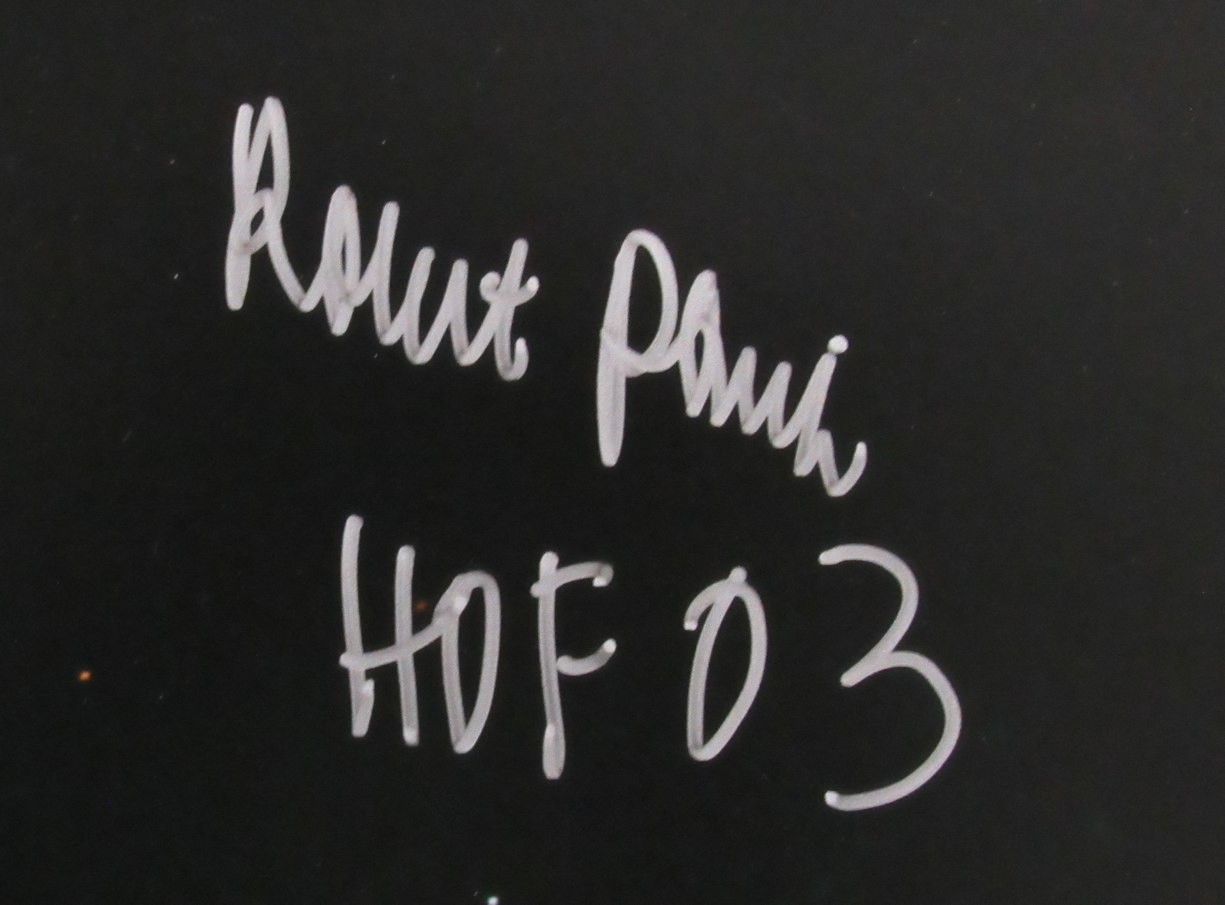 Robert Parish
HOF 03